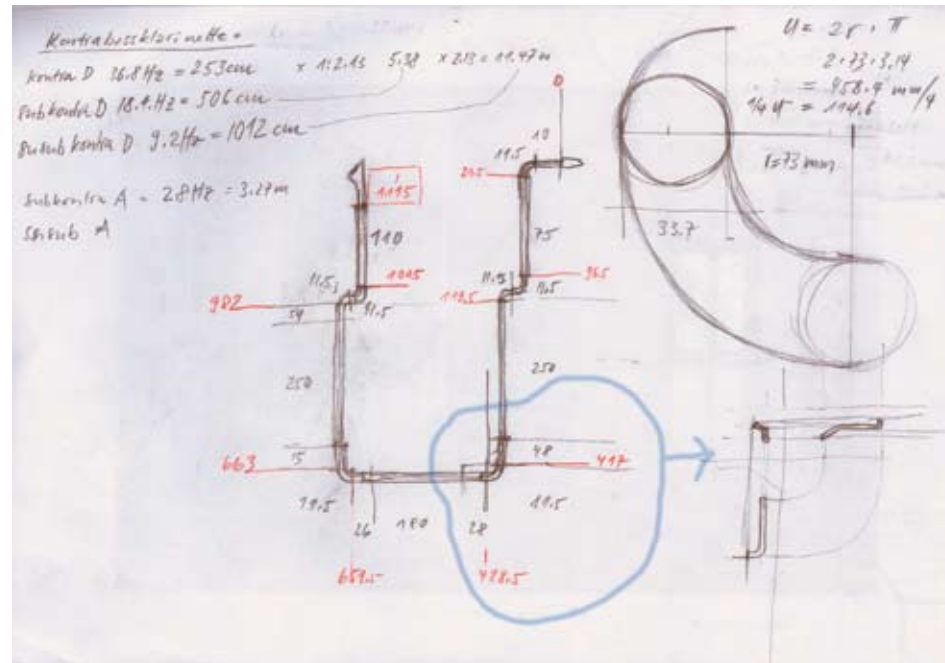 Kontrabassklarinette.
Kontra D 36.8 Hz = 253 cm x 1:2.13 5.38 x 2.13 = 11.47 m
Subkontra D 18.4 Hz = 506 cm
Susub kontra D 9.2 Hz = 1012 cm
Subkontra A = 28 Hz = 3.27 m
A
U = 2r · π
2 · 73 · 3.14
= 458.4 mm/4
1/4 U = 114.6
r = 73 mm
33.7
0
10
11.5
1115
110
75
11.5
1015
11.5
96.5
982
11.5
119.5
11.5
59
250
250
663
15
48
417
11.5
26
180
28
11.5
428.5